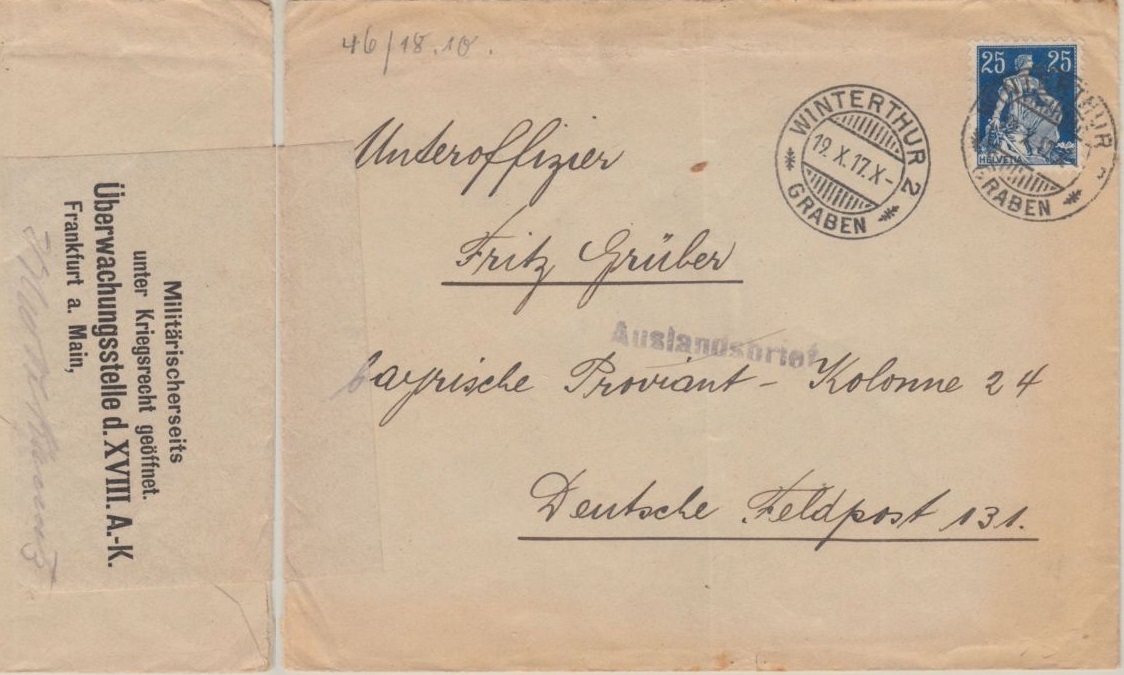 Militärischerseits
unter Kriegsrecht geöffnet.
Überwachungsstelle d. XVIII. A.-K.
Frankfurt a. Main,
46/18.10.
25 25
HELVETIA
WINTERTHUR 2
19.X.17.X-
GRABEN
WINTERTHUR
GRABEN
Unteroffizier
Fritz Grüber
Auslandsbrief
bayrische Proviant - Kolonne 24
Deutsche Feldpost 131.